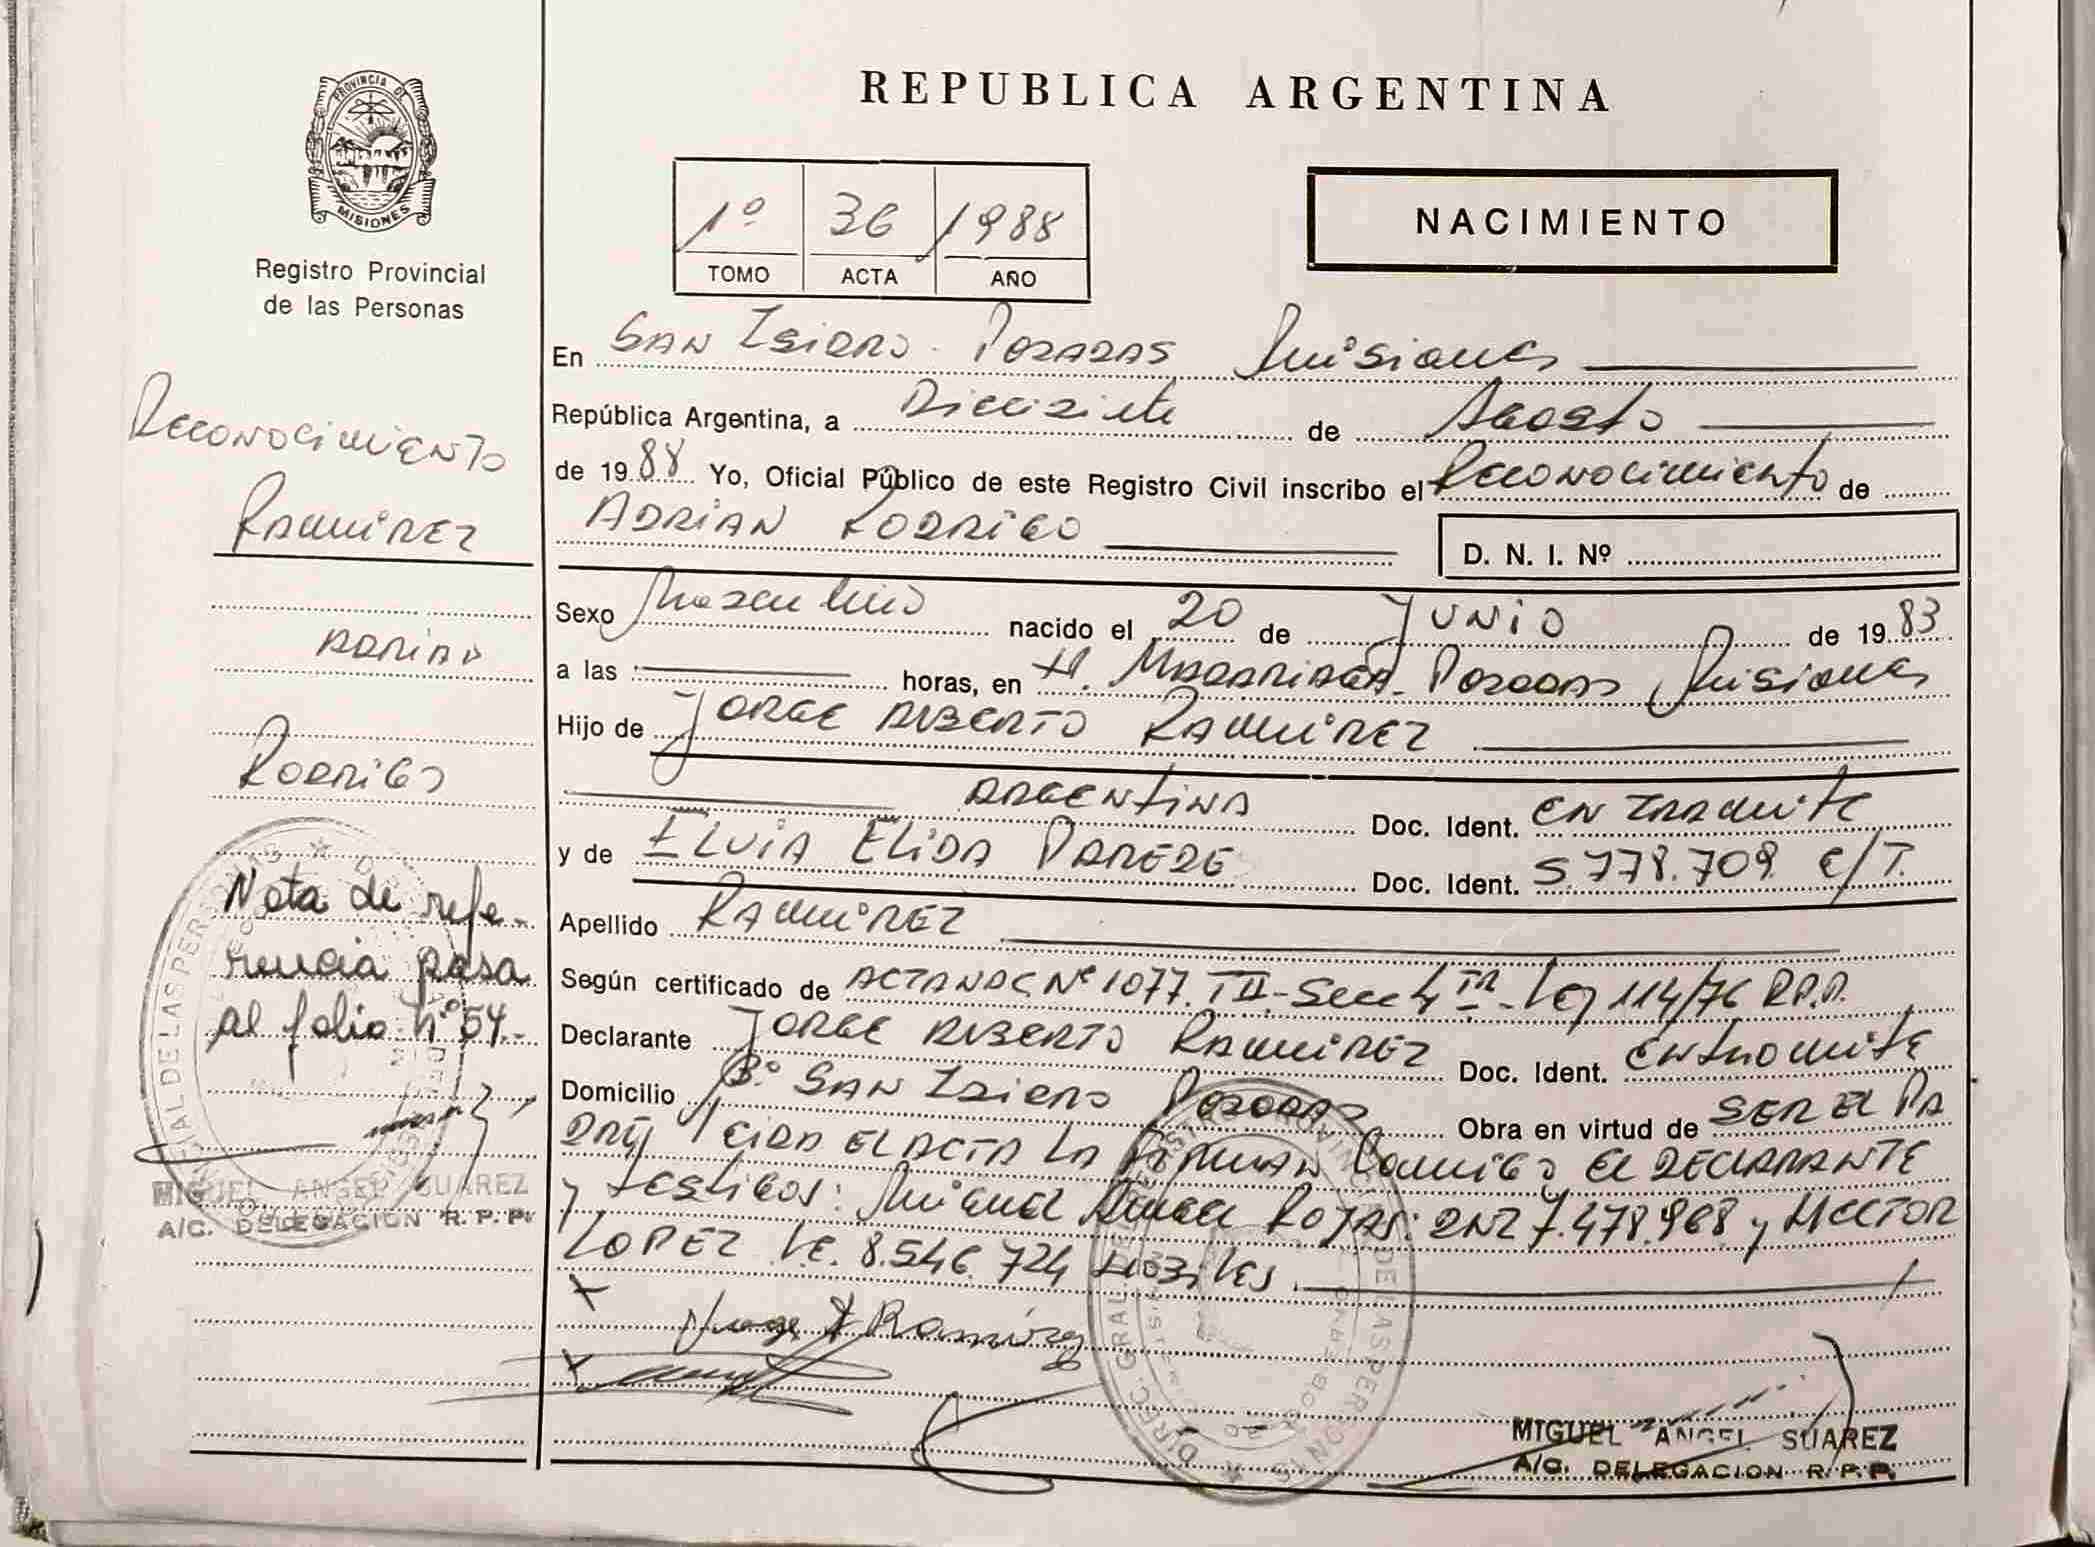 PROVINCIA DE
MISIONES
Registro Provincial
de las Personas
Reconocimiento
RAMIREZ
ADRIAN
RODRIGO
Nota de refe-
rencia pasa
al folio nº 54.-
MIGUEL ANGEL SUAREZ
A/C. DELEGACION R. P. P.
REPUBLICA ARGENTINA
1º 36 1988
TOMO ACTA AÑO
NACIMIENTO
En SAN ISIDRO - POSADAS Misiones
República Argentina, a Diecisiete de Agosto
de 1988 Yo, Oficial Público de este Registro Civil inscribo el Reconocimiento de
ADRIAN RODRIGO D. N. I. Nº
Sexo Masculino nacido el 20 de JUNIO de 1983
a las horas, en H. MADARIAGA - POSADAS Misiones
Hijo de JORGE ALBERTO RAMIREZ
ARGENTINA Doc. Ident. EN TRAMITE
y de ELVIA ELIDA PAREDE Doc. Ident. 5.778.709 C/T.
Apellido RAMIREZ
Según certificado de ACTA NAC Nº 1077. TII - Secc 4ta - Ley 114/76 R.P.P.
Declarante JORGE ALBERTO RAMIREZ Doc. Ident. EN tramite
Domicilio Bº SAN ISIDRO POSADAS Obra en virtud de SER EL PA
DRE LEIDA EL ACTA LA FIRMAN Conmigo EL DECLARANTE
y testigos: Miguel Angel ROJAS: DNI 7.478.968 y HECTOR
LOPEZ L.E. 8.546.724 HABILES.
Jorge A Ramírez
DIREC. GRAL. DEL REGISTRO PROVINCIAL DE LAS PERSONAS
MIGUEL ANGEL SUAREZ
A/C. DELEGACION R. P. P.